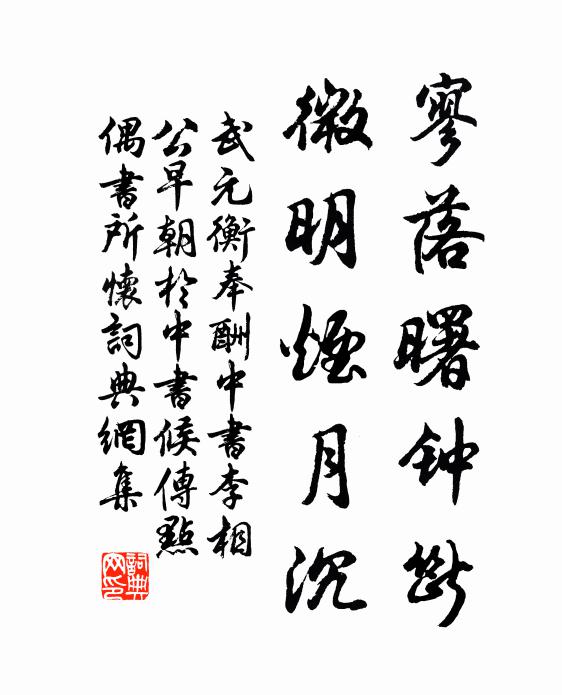 寥落曙钟斷
微明煙月沉
武元衡奉酬中書李相
公早朝於中書候傳點
偶書所懷詞典網集
詞典
网印